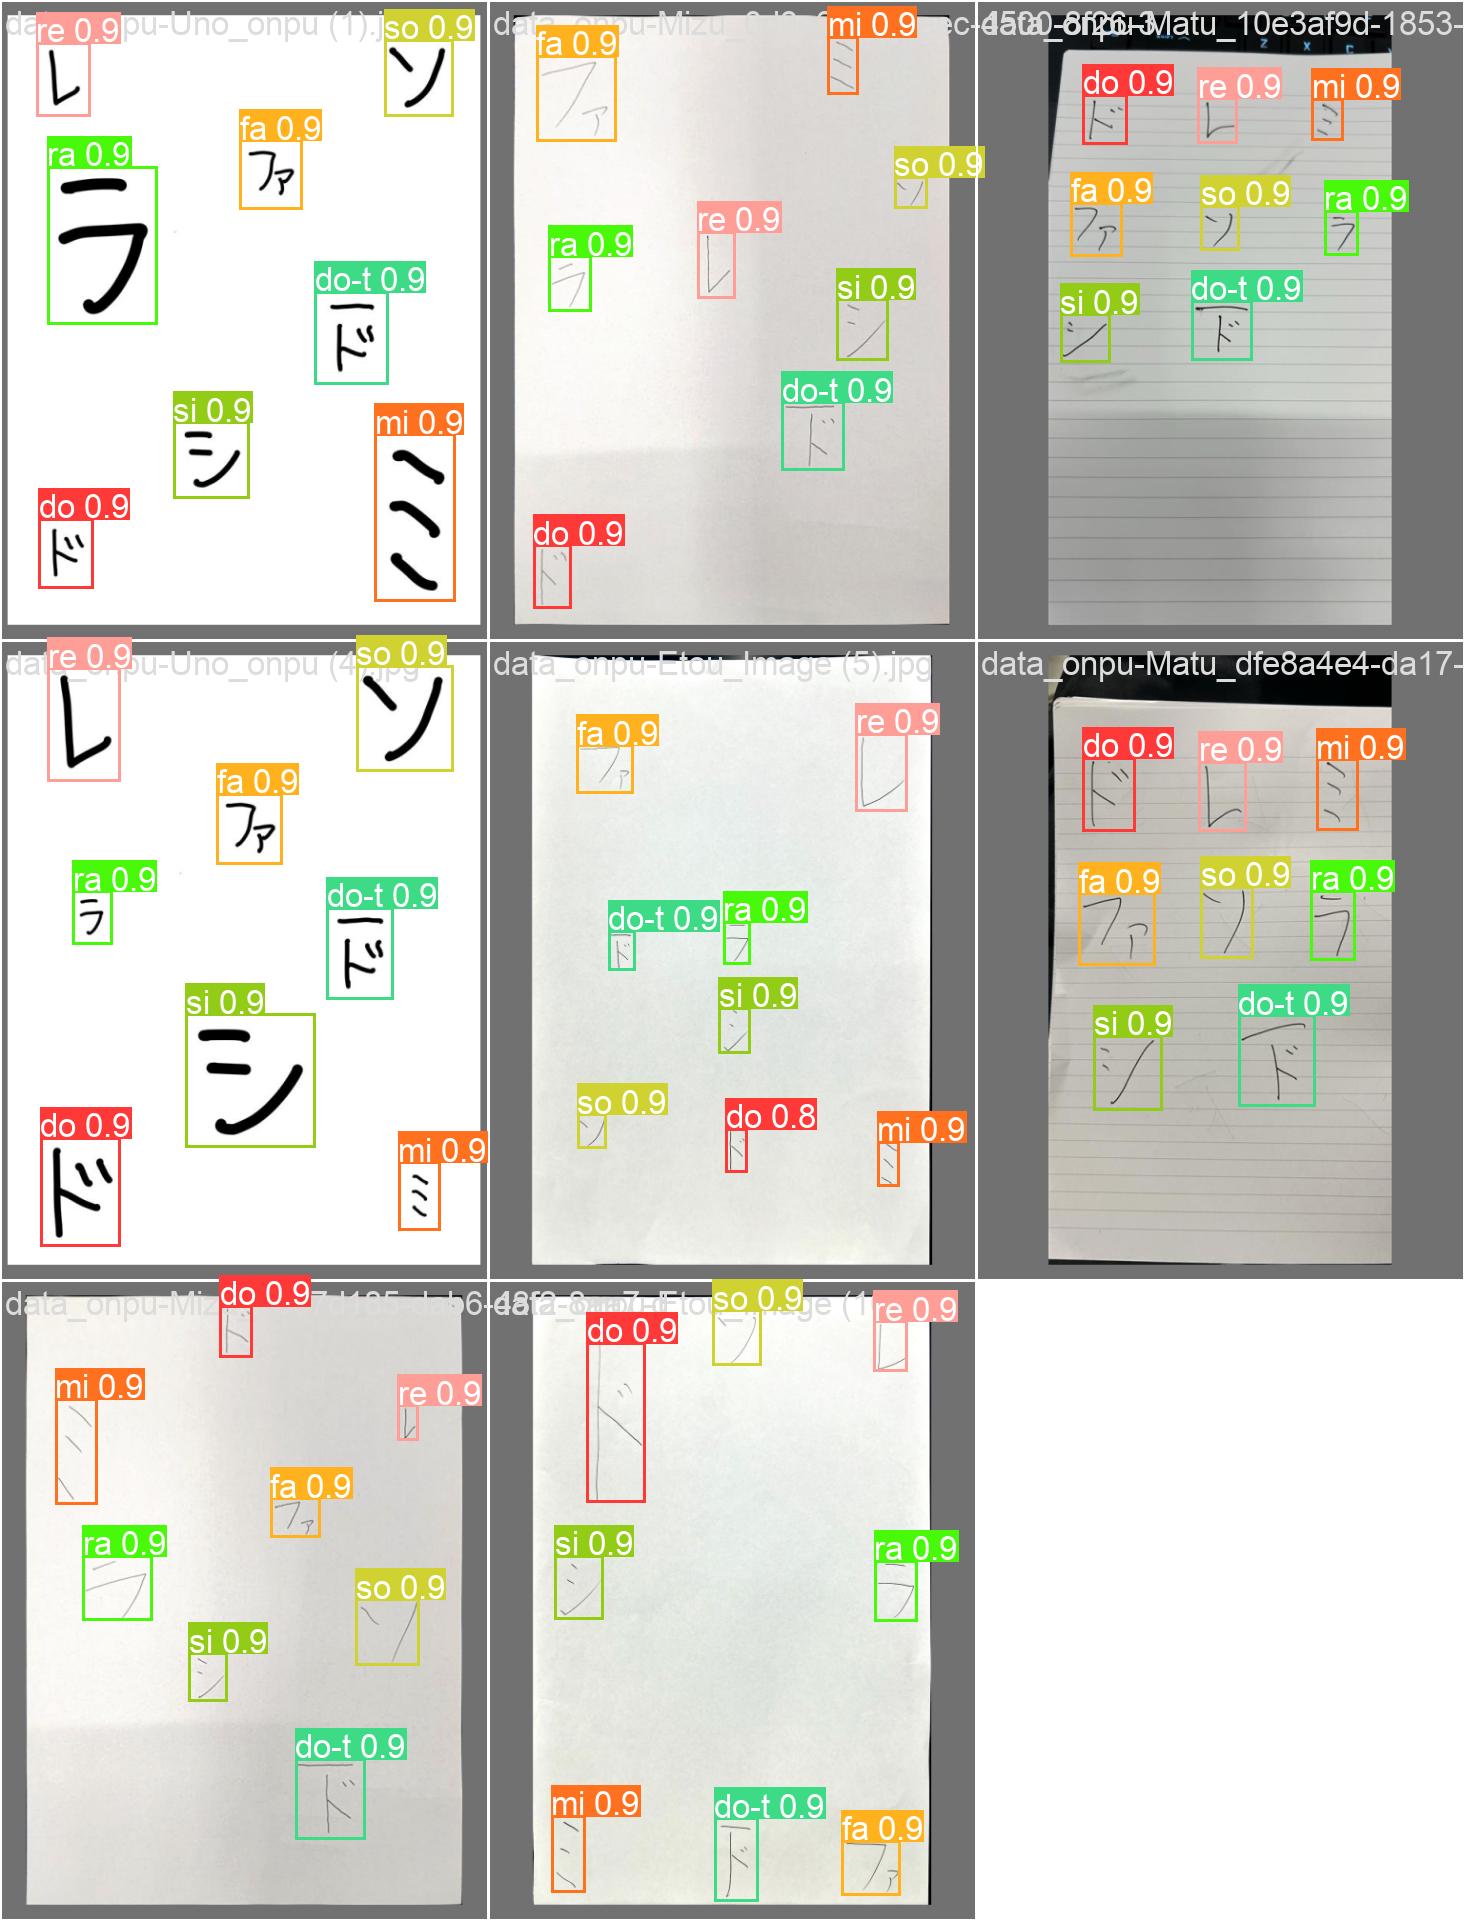 data_onpu-Uno_onpu (1).jpg
re 0.9
レ
so 0.9
ソ
fa 0.9
ファ
ra 0.9
ラ
do-t 0.9
ド
si 0.9
シ
mi 0.9
ミ
do 0.9
ド
data_onpu-Mizu_
fa 0.9
ファ
mi 0.9
ミ
so 0.9
ソ
re 0.9
レ
ra 0.9
ラ
si 0.9
シ
do-t 0.9
ド
do 0.9
ド
data_onpu-Matu_10e3af9d-1853-
Z X C
do 0.9
ド
re 0.9
レ
mi 0.9
ミ
fa 0.9
ファ
so 0.9
ソ
ra 0.9
ラ
si 0.9
シ
do-t 0.9
ド
data_onpu-Uno_onpu (4).jpg
re 0.9
レ
so 0.9
ソ
fa 0.9
ファ
ra 0.9
ラ
do-t 0.9
ド
si 0.9
シ
do 0.9
ド
mi 0.9
ミ
data_onpu-Etou_Image (5).jpg
fa 0.9
ファ
re 0.9
レ
do-t 0.9
ド
ra 0.9
ラ
si 0.9
シ
so 0.9
ソ
do 0.8
ド
mi 0.9
ミ
data_onpu-Matu_dfe8a4e4-da17-
do 0.9
ド
re 0.9
レ
mi 0.9
ミ
fa 0.9
ファ
so 0.9
ソ
ra 0.9
ラ
si 0.9
シ
do-t 0.9
ド
do 0.9
ド
mi 0.9
ミ
re 0.9
レ
fa 0.9
ファ
ra 0.9
ラ
so 0.9
ソ
si 0.9
シ
do-t 0.9
ド
so 0.9
ソ
re 0.9
レ
do 0.9
ド
si 0.9
シ
ra 0.9
ラ
mi 0.9
ミ
do-t 0.9
ド
fa 0.9
ファ